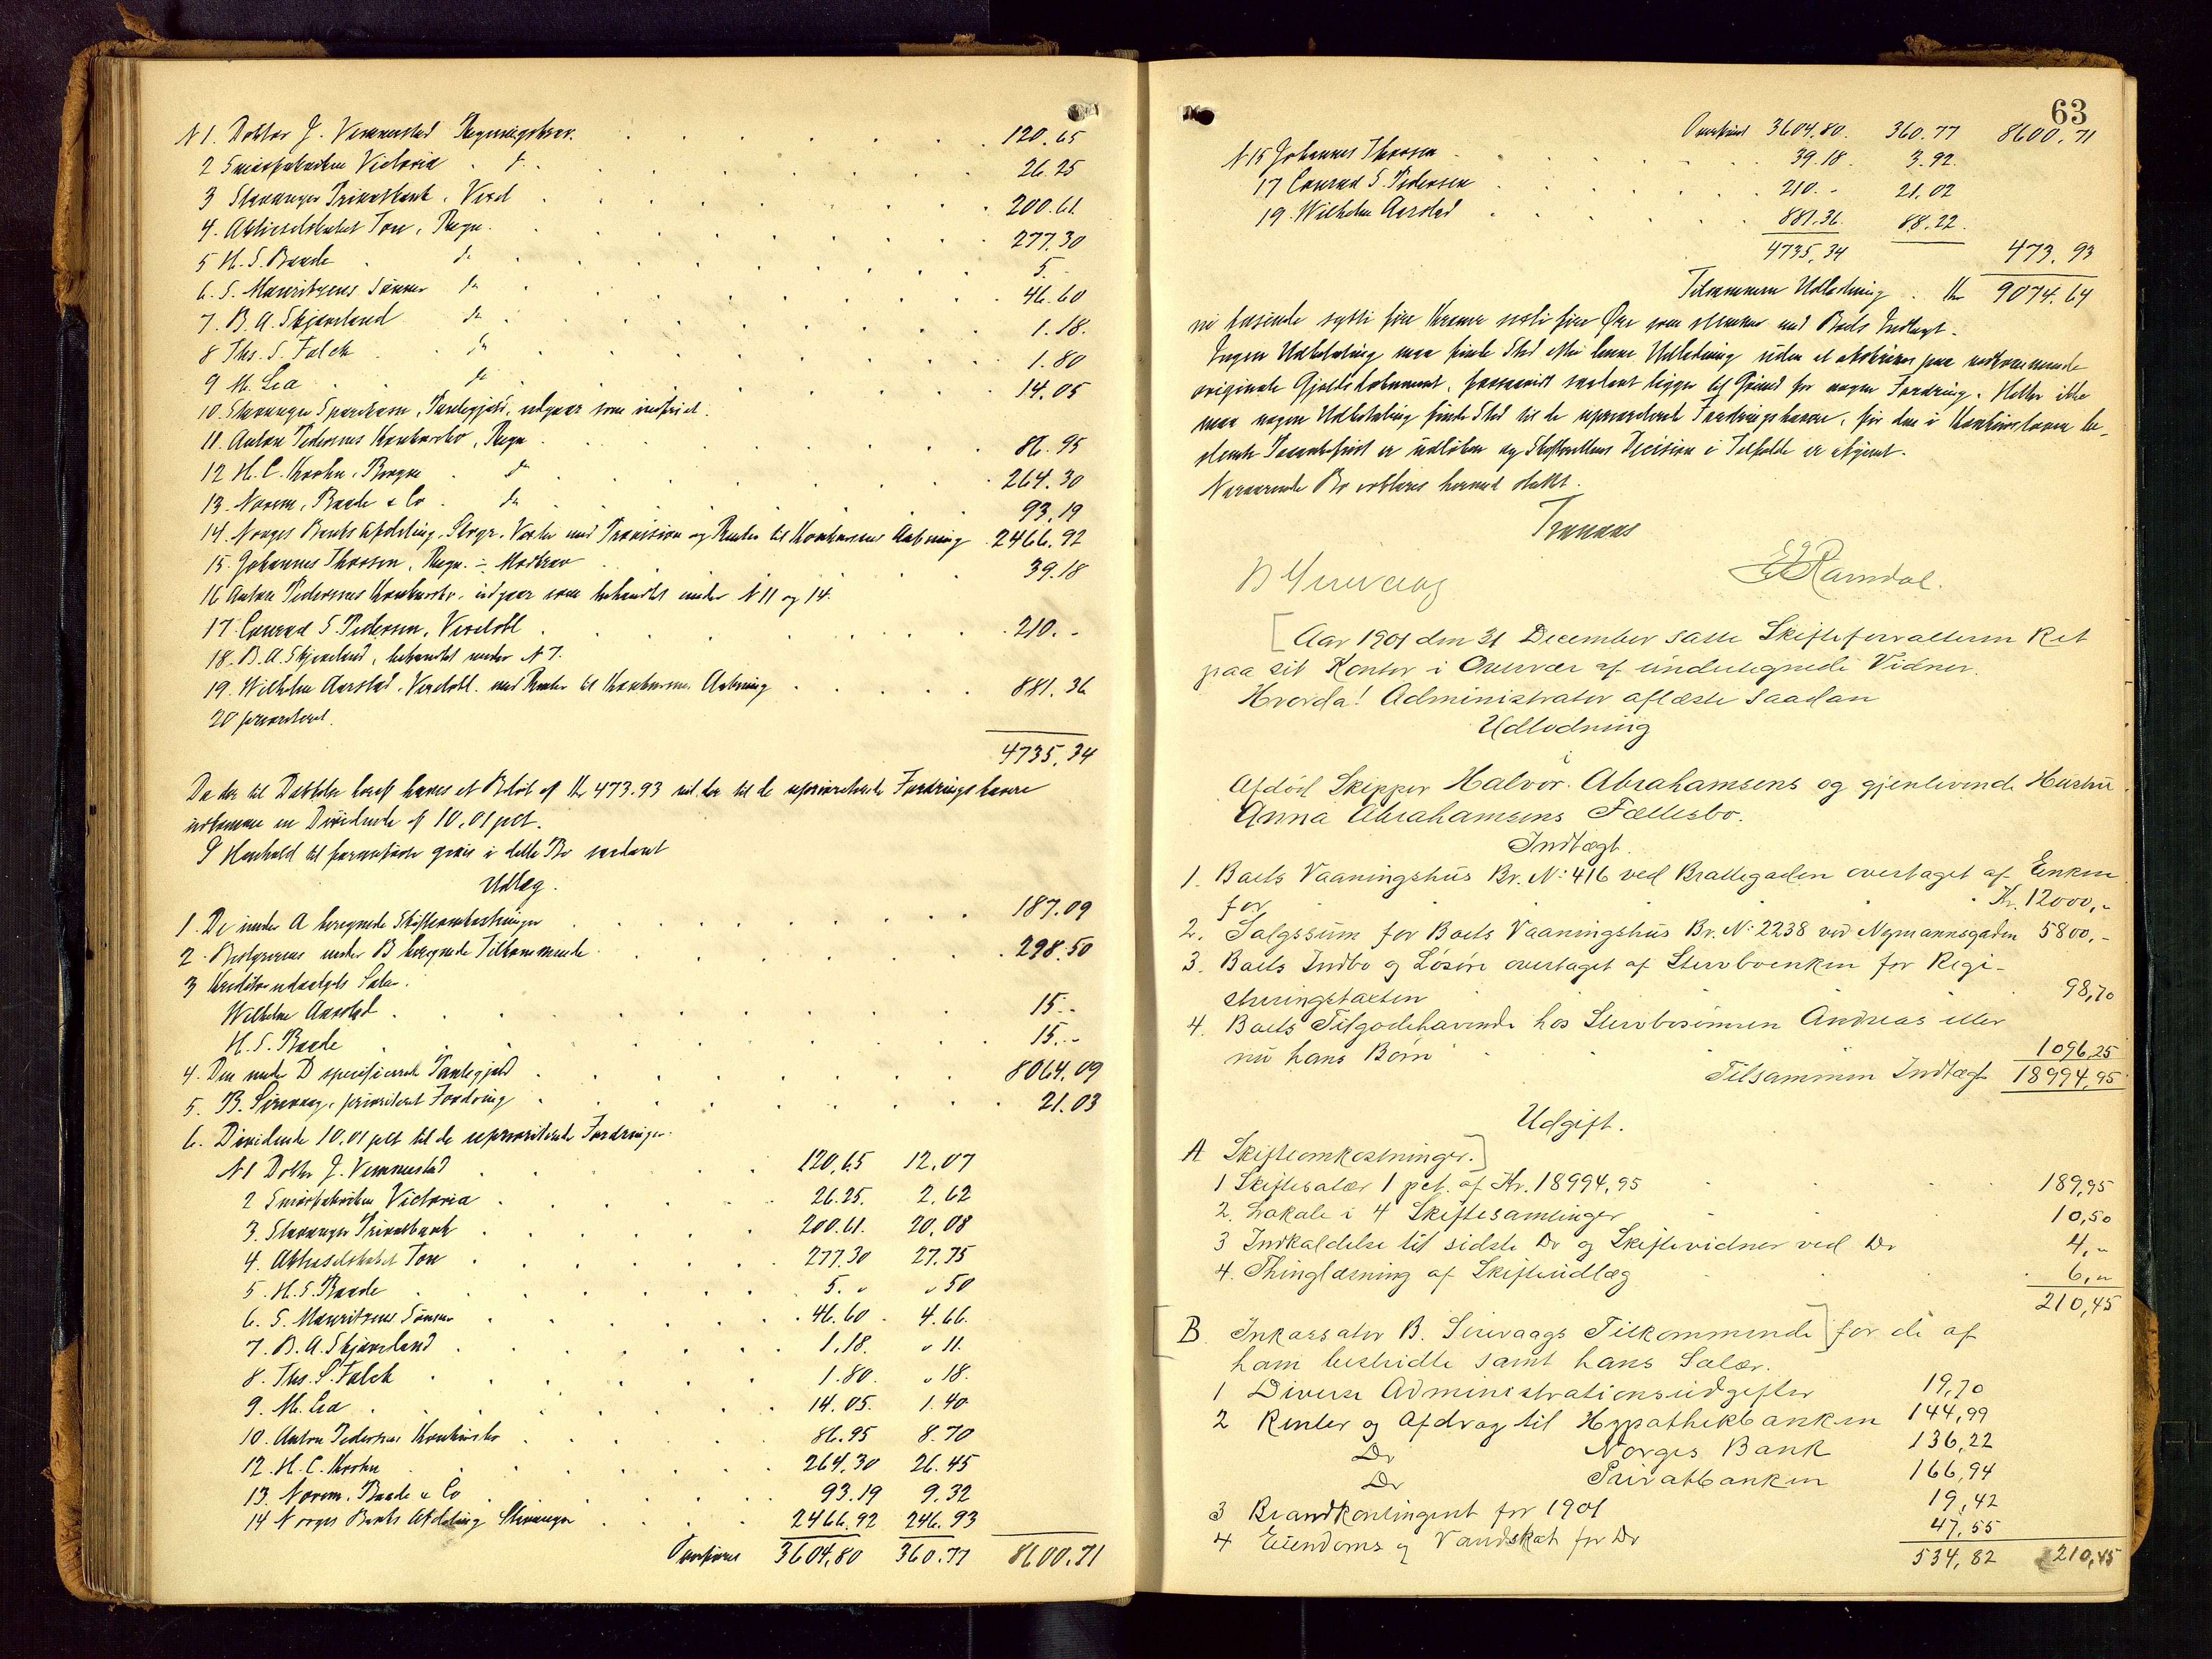 N 1. Doktor J. Vemmestad Regningskrav. 120.65
2 Smørfabriken Victoria . d. 26.25
3 Stavanger Privatbank, Vexel 200.61
4. Aktieselskabet Tou, Regn. 277.30
5 H. S. Baade do 5.-
6. S. Mauritzens Sønner do 46.60
7. B. A. Skjæveland do 1.18.
8 Ths. S. Falck do 1.80
9 M. Lea do 14.05
10. Stavanger Sparekasse, Pantegjæld, udgaar som indfriet.
11. Anton Pedersens Konkursbo, Regn 86.95
12 H. C. Krohn, Bergen do 264.30
13. Norem, Baade & Co do 93.19
14. Norges Banks Afdeling, Stvgr. Vexler med Provision og Renter til Konkursens Aabning 2466.92
15. Johannes Thorsen, Regn. ÷ Modkrav 39.18
16 Anton Pedersens Konkursbo, udgaar som behandlet under N 11 og 14.
17. Conrad S. Pedersen, Vexelobl 210.-
18. B. A. Skjæveland, behandlet under N 7.
19. Wilhelm Aarstad, Vexelobl. med Renter til Konkursens Aabning 881.36
20 prioriteret.
4735,34
Da der til Dækkelse heraf haves et Beløb af Kr 473.93 vil der til de uprioriterede Fordringshavere
udkomme en Dividende af 10,01 pct.
I Henhold til foranførte gives i dette Bo saadant
Udlæg.
1. De under A beregnede Skifteomkostninger 187.09
2. Bestyrerens under B beregnede Tilkommende 298.50
3 Kreditorudvalgets Salær.
Wilhelm Aarstad 15.-
H. S. Baade 15.-
4. Den under D specificerede Pantegjæld 8064,09
5. B. Sirevaag, prioriteret Fordring 21.03
6. Dividende 10,01 pct til de uprioriterede Fordringer.
N 1 Doktor J. Vemmestad 120,65 12,07
2 Smørfabriken Victoria 26.25. 2,62
3. Stavanger Privatbank 200.61. 20,08
4. Aktieselskabet Tou 277.30 27.75
5. H. S. Baade 5. " " 50
6. S. Mauritzens Sønner 46.60 4.66.
7. B. A. Skjæveland 1.18. " 11.
8. Ths. S. Falck 1.80. " 18.
9. M. Lea 14.05. 1.40
10. Anton Pedersens Konkursbo 86.95 8.70
12. H. C. Krohn 264,30 26.45
13. Norem, Baade & Co 93.19 9.32
14 Norges Banks Afdeling Stavanger 2466.92 246.93
Overføres 3604,80 360.77 8600.71
63
Overført 3604,80. 360.77 8600,71
N 15 Johannes Thorsen 39.18. 3.92.
17 Conrad S. Pedersen 210.- 21,02
19. Wilhelm Aarstad 881.36. 88.22.
4735,34 473.93
Tilsammen Udlodning Kr 9074.64
ni tusinde sytti fire Kroner seksti fire Øre som stemmer med Boets Indtægt.
Ingen Udbetaling maa finde Sted efter denne Udlodning uden at afskrives paa vedkommende
originale Gjældsdokument, forsaavidt saadant ligger til Grund for nogen Fordring. Heller ikke
maa nogen Udbetaling finde Sted til de uprioriterede Fordringshavere, før den i Konkursloven be-
stemte Paaankefrist er udløben og Skifterettens Decision i Tilfælde er afgivet.
Nærværende Bo erklæres hermed sluttet.
B Sirevaag E Ramdal.
[Aar 1901 den 31 December satte Skifteforvalteren Ret
paa sit Kontor i Overvær af undertegnede Vidner.
Hvorda! Administrator aflæste saadan
Udlodning
i
Afdød Skipper Halvor Abrahamsens og gjenlevende Hustru
Anna Abrahamsens Fællesbo.
Indtægt.
1. Boets Vaaningshus Br. N: 416 ved Brattegaden overtaget af Enken
for Kr. 12000,-
2. Salgssum for Boets Vaaningshus Br. N: 2238 ved Nymannsgaden 5800,-
3. Boets Indbo og Løsøre overtaget af Stervboenken for Regi-
streringstaxten 98,70
4. Boets Tilgodehavende hos Stervbosønnen Andreas eller
nu hans Børn 1096,25
Tilsammen Indtægt 18994,95
Udgift.
A Skifteomkostninger.]
1 Skiftesalær 1 pct. af Kr. 18994,95 189,95
2. Lokale i 4 Skiftesamlinger 10,50
3 Indkaldelse til sidste Do og Skiftevidner ved Do 4,"
4. Thinglæsning af Skifteudlæg 6,"
210,45
[B. Inkassator B. Sirevaags Tilkommende] for de af
ham bestridte samt hans Salær.
1 Diverse Administrationsudgifter 19,70
2 Renter og Afdrag til Hypothekbanken 144,99
Do Norges Bank 136,22
Do Privatbanken 166,94
3 Brandkontingent for 1901 19,42
4 Eiendoms og Vandskat for Do 47,55
534,82 210,45